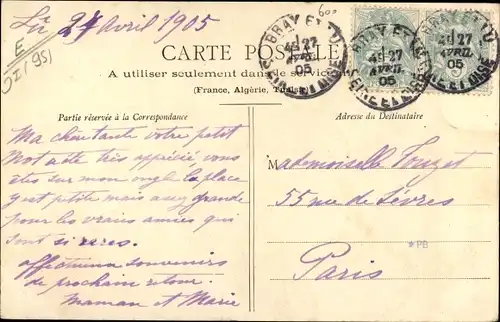 27 avril 1905
600
E
I (95)
BRAY ET LU
27
AVRIL
05
SEINE ET OISE
BRAY ET LU
27
AVRIL
05
SEINE ET OISE
BRAY ET LU
27
AVRIL
05
SEINE ET OISE
CARTE POSTALE
A utiliser seulement dans le service
(France, Algérie, Tunisie)
Partie réservée à la Correspondance
Adresse du Destinataire
Ma chère tante votre petit
Mot a été très apprécié vous
êtes sur mon ongle la place
y est petite mais assez grande
pour les vraies amies qui
sont si rares.
affectueux souvenirs
de prochain retour.
Maman et Marie
Mademoiselle Touzet
55 rue de Sèvres
Paris
*PB